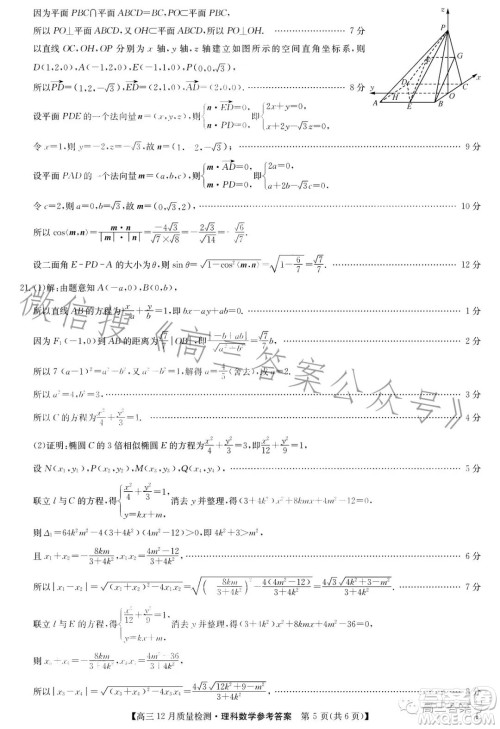 因为平面 PBC∩平面 ABCD=BC,PO⊂平面 PBC,
所以 PO⊥平面 ABCD,又 OH⊂平面 ABCD,所以 PO⊥OH. …… 7 分
以直线 OC,OH,OP 分别为 x 轴,y 轴,z 轴建立如图所示的空间直角坐标系,则
D(1,2,0),A(-1,2,0),E(-1,1,0),P(0,0,√3),
所以PD=(1,2,-√3),ED=(2,1,0),AD=(2,0,0). …… 8 分
设平面 PDE 的一个法向量 n=(x,y,z),则{n·ED=0, n·PD=0, 即{2x+y=0, x+2y-√3z=0,
令 x=1,则 y=-2,z=-√3,故 n=(1,-2,-√3); …… 9 分
设平面 PAD 的一个法向量 m=(a,b,c),则{m·AD=0, m·PD=0, 即{2a=0, a+2b-√3c=0,
令 c=2,则 a=0,b=√3,故 m=(0,√3,2), …… 10 分
所以 cos⟨m,n⟩=m·n/|m||n|=-4√3/(√7×√8)=-2√3/√14=-√6/√7.
设二面角 E-PD-A 的大小为θ,则 sin θ=√(1-cos²⟨m,n⟩)=√(1-6/7)=√7/7. …… 12 分
21.(1)解:由题意知 A(-a,0),B(0,b),
所以直线 AB 的方程为x/-a+y/b=1,即 bx-ay+ab=0. …… 1 分
因为 F₁(-1,0)到 AB 的距离为√7/7|OB|,即|-b+ab|/√(a²+b²)=√7/7 b,
所以 7(a-1)²=a²+b²,又 a²-b²=1,解得 a=2
所以 a²=4,b²=3, …… 3 分
所以 C 的方程为x²/4+y²/3=1. …… 4 分
(2)证明:椭圆 C 的 3 倍相似椭圆 E 的方程为x²/12+y²/9=1,
设 N(x₁,y₁),P(x₂,y₂),M(x₃,y₃),Q(x₄,y₄), …… 5 分
联立 l 与 C 的方程,得{x²/4+y²/3=1, y=kx+m, 消去 y 并整理,得(3+4k²)x²+8kmx+4m²-12=0,
则 Δ₁=64k²m²-4(3+4k²)(4m²-12)>0,即 4k²+3>m²,
且 x₁+x₂=-8km/(3+4k²),x₁x₂=(4m²-12)/(3+4k²), …… 6 分
所以|x₁-x₂|=√((x₁+x₂)²-4x₁x₂)=√((-8km/(3+4k²))²-4(4m²-12)/(3+4k²))=4√3√(4k²+3-m²)/(3+4k²). …… 7 分
联立 l 与 E 的方程,得{x²/12+y²/9=1, y=kx+m, 消去 y 并整理,得(3+4k²)x²+8kmx+4m²-36=0,
则 x₃+x₄=-8km/(3+4k²),x₃x₄=(4m²-36)/(3+4k²),
所以|x₃-x₄|=√((x₃+x₄)²-4x₃x₄)=4√3√(12k²+9-m²)/(3+4k²). …… 8 分
【高三 12 月质量检测·理科数学参考答案 第 5 页(共 6 页)】
微信搜《高三答案公众号》